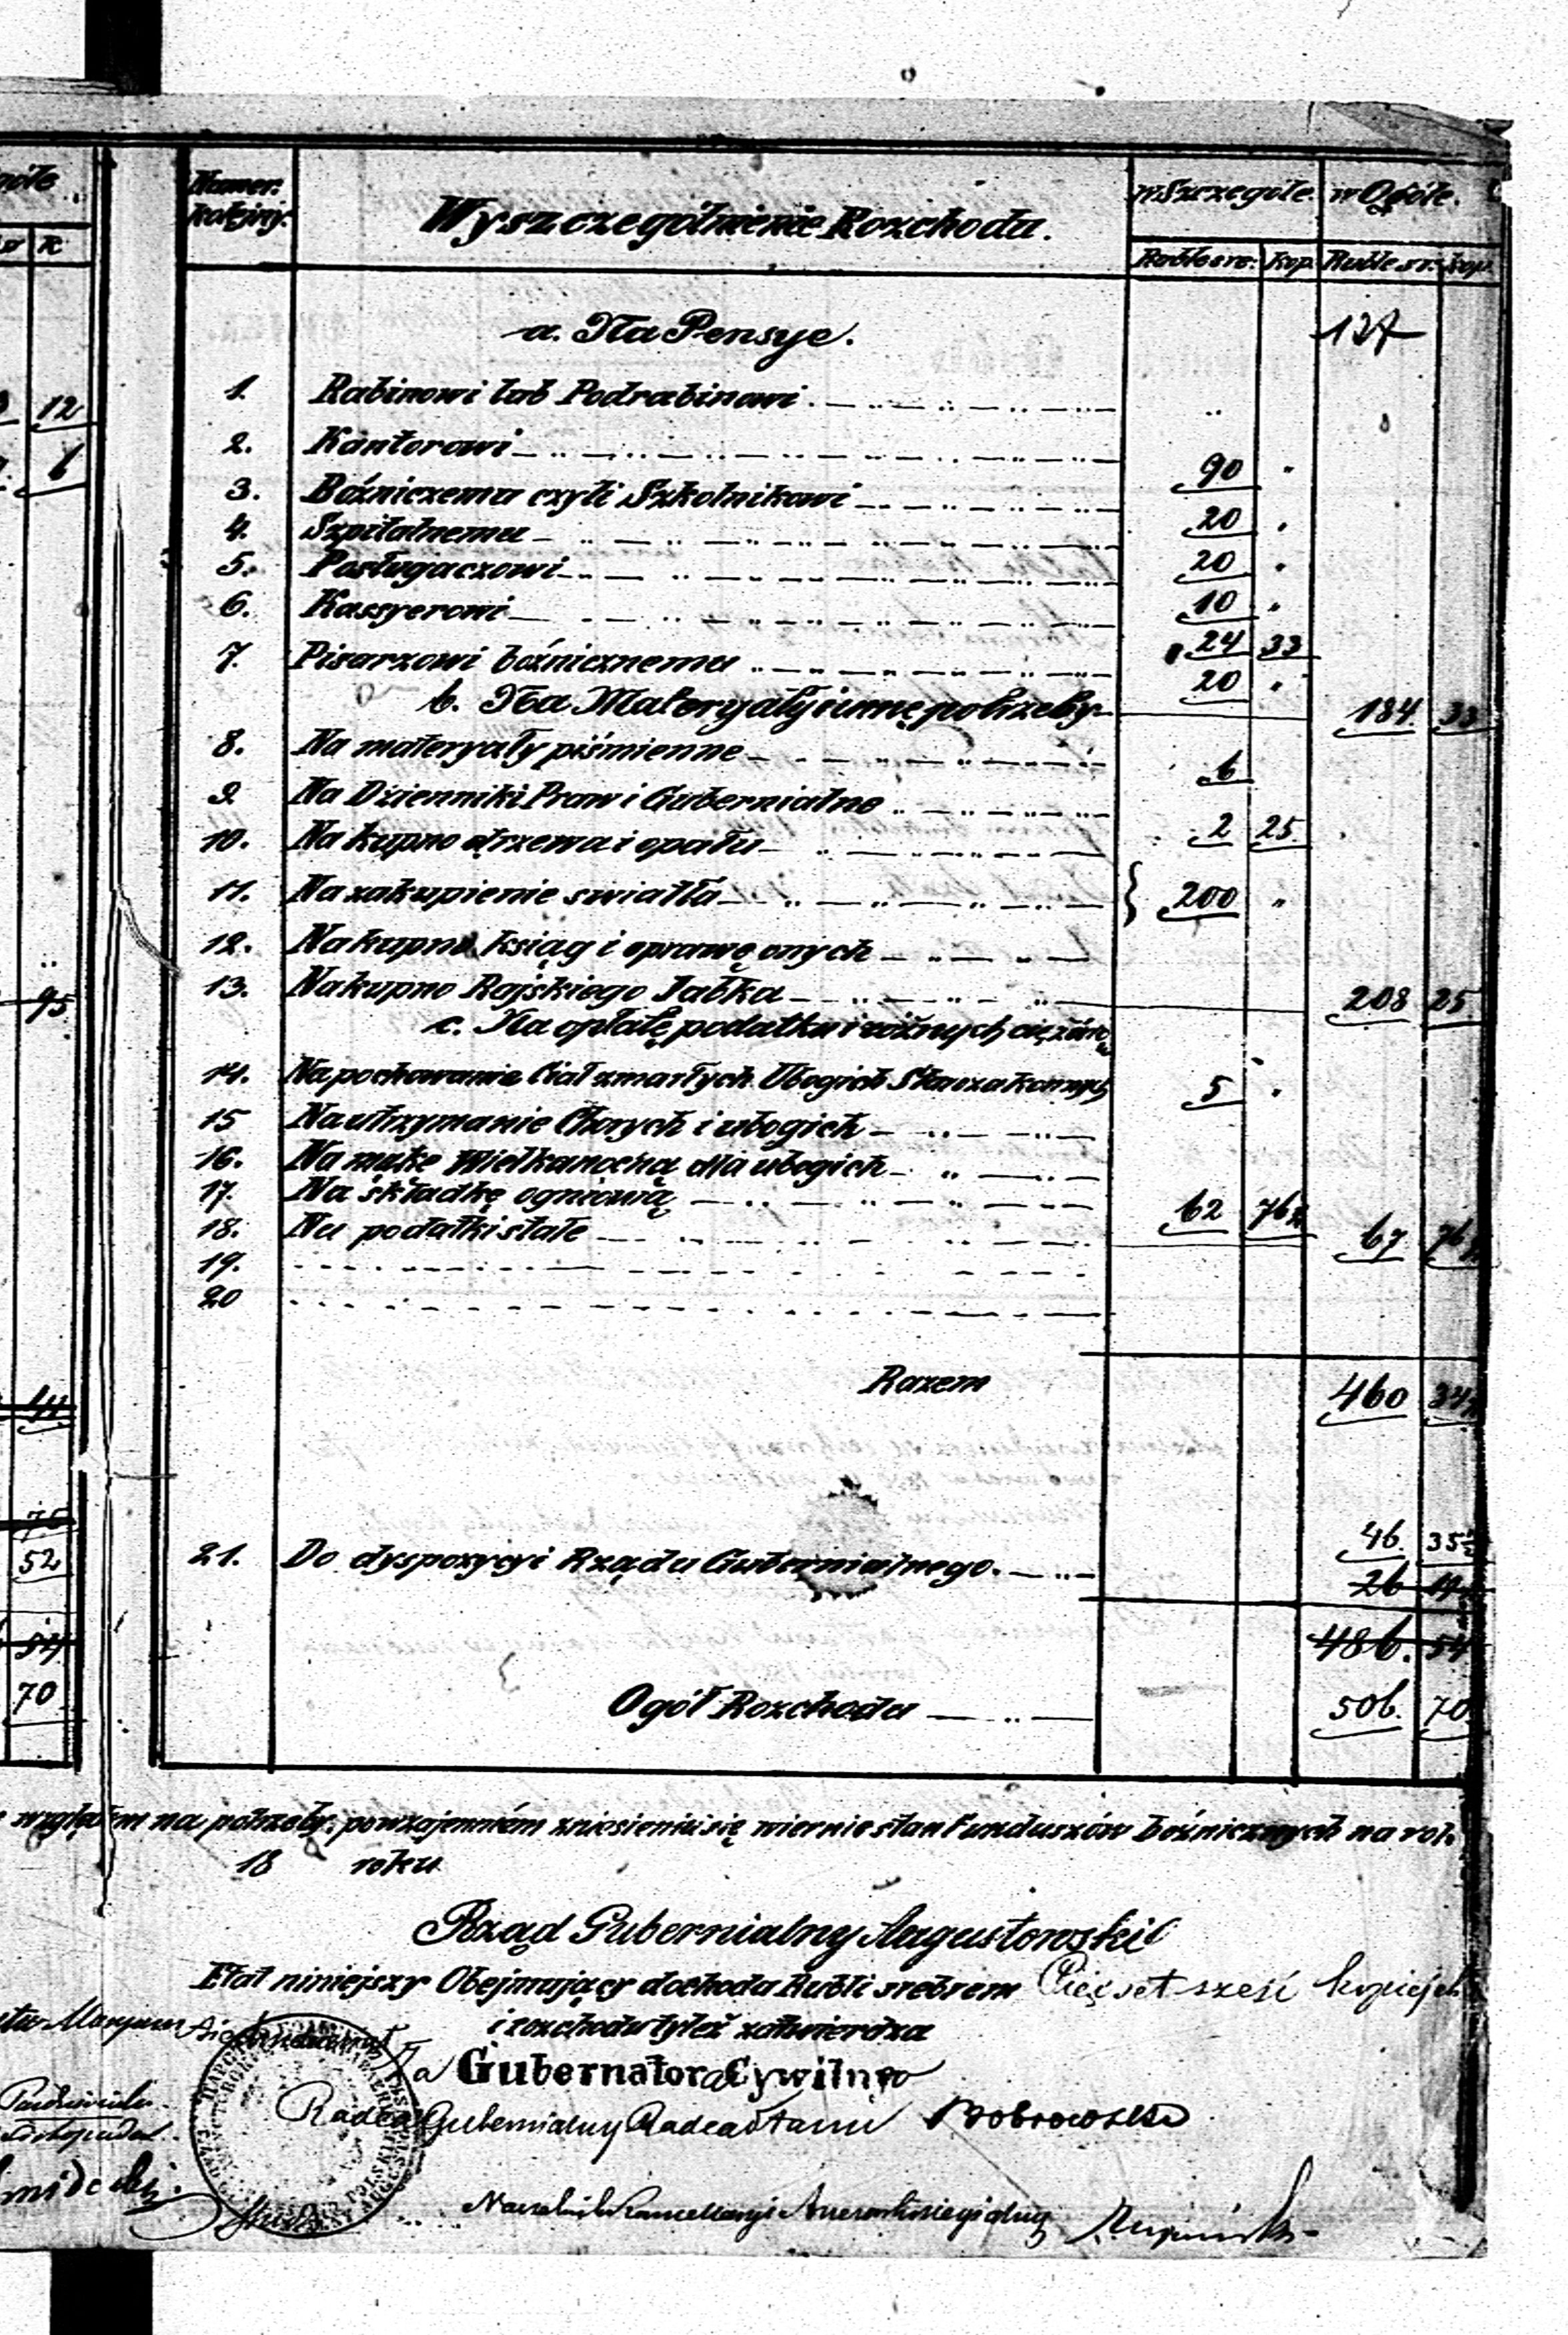 Numer kolejny.
Wyszczególnienie Rozchodu.
w Szczególe. w Ogóle.
Ruble sre: Kop. Ruble sr: kop.
a. Na Pensye. 127
1. Rabinowi lub Podrabinowi
2. Kantorowi 90 "
3. Bóźniczemu czyli Szkolnikowi 20 "
4. Szpitalnemu 20 "
5. Posługaczowi 10 "
6. Kassyerowi 24 33
7. Pisarzowi bóźnicznemu 20 "
b. Na Materyały i inne potrzeby 184 33
8. Na materyały piśmienne 6
9. Na Dzienniki Praw i Gubernialne 2 25
10. Na kupno drzewa i opału
11. Na zakupienie swiatła } 200 "
12. Na kupno ksiąg i oprawę onych
13. Na kupno Rajskiego Jabłka 208 25
c. Na opłatę podatku i różnych ciężarów
14. Na pochowanie Ciał zmarłych Ubogich Starozakonnych 5 "
15 Na utrzymanie Chorych i ubogich
16. Na mąkę Wielkanocną dla ubogich
17. Na składkę ogniową 62 76½
18. Na podatki stałe 67 76½
19.
20
Razem 460 34½
46. 35½
21. Do dyspozycyi Rządu Gubernialnego.
26 19
486. 54
Ogół Rozchodu 506. 70
12
6
95
44
75
52
54
70
względem na potrzeby, po wzajemném zniesieniu się wiernie stan Funduszów bóźnicznych na rok
18 roku
Rząd Gubernialny Augustowski
Etat niniejszy Obejmujący dochodu Rubli srebrem Pięćset sześć kopiejek
i rozchodu tyleż zatwierdza
Za Gubernatora Cywilnego
Radca Gubernialny Radca Stanu Dobrowolski
Naczelnik Kancellaryi